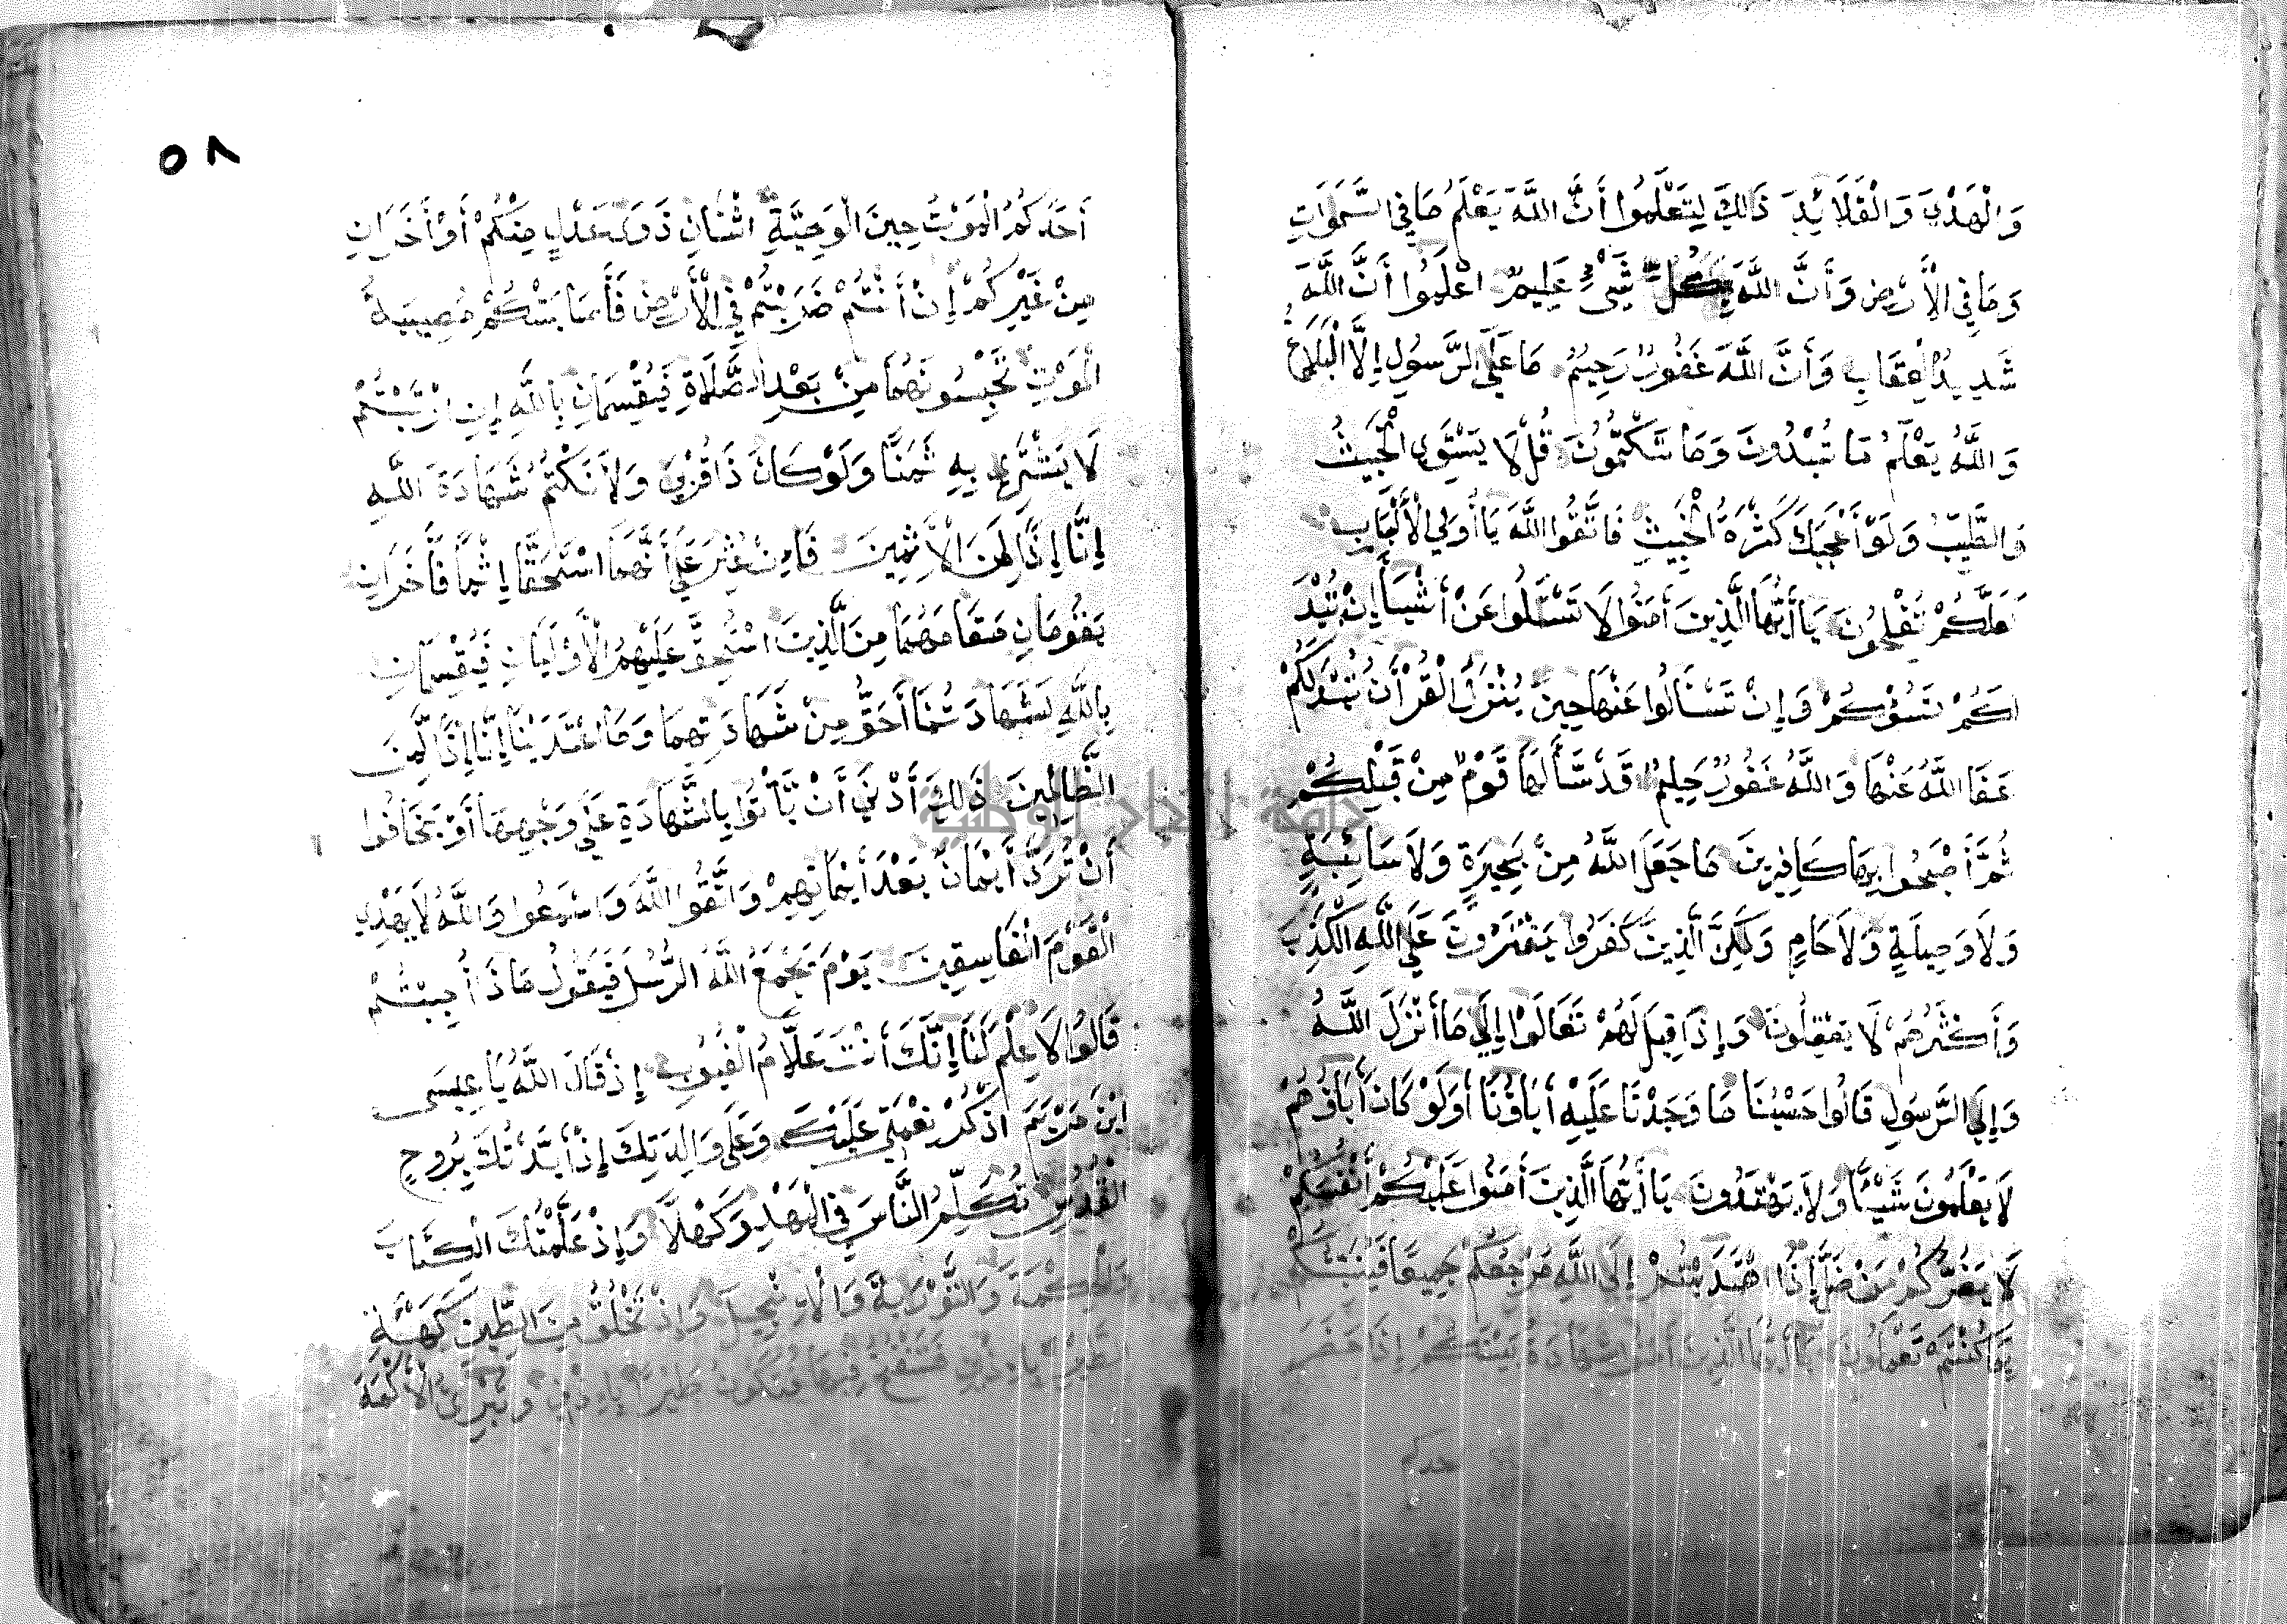 وَالْهَدْيَ وَالْقَلَائِدَ ذَالِكَ لِتَعْلَمُوا أَنَّ اللَّهَ يَعْلَمُ مَا فِي السَّمَوَاتِ
وَمَا فِي الْأَرْضِ وَأَنَّ اللَّهَ بِكُلِّ شَيْءٍ عَلِيمٌ اعْلَمُوا أَنَّ اللَّهَ
شَدِيدُ الْعِقَابِ وَأَنَّ اللَّهَ غَفُورٌ رَحِيمٌ مَا عَلَى الرَّسُولِ إِلَّا الْبَلَاغُ
وَاللَّهُ يَعْلَمُ مَا تُبْدُونَ وَمَا تَكْتُمُونَ قُلْ لَا يَسْتَوِي الْخَبِيثُ
وَالطَّيِّبُ وَلَوْ أَعْجَبَكَ كَثْرَةُ الْخَبِيثِ فَاتَّقُوا اللَّهَ يَا أُولِي الْأَلْبَابِ
لَعَلَّكُمْ تُفْلِحُونَ يَا أَيُّهَا الَّذِينَ أَمَنُوا لَا تَسْئَلُوا عَنْ أَشْيَأَ إِنْ تُبْدَ
لَكُمْ تَسُؤْكُمْ وَإِنْ تَسْأَلُوا عَنْهَا حِينَ يُنْزَلُ الْقُرْأَنُ تُبْدَ لَكُمْ
عَفَا اللَّهُ عَنْهَا وَاللَّهُ غَفُورٌ حَلِيمٌ قَدْ سَّأَلَهَا قَوْمٌ مِنْ قَبْلِكُمْ
ثُمَّ أَصْبَحُوا بِهَا كَافِرِينَ مَا جَعَلَ اللَّهُ مِنْ بَحِيرَةٍ وَلَا سَائِبَةٍ
وَلَا وَصِيلَةٍ وَلَا حَامٍ وَلَكِنَّ الَّذِينَ كَفَرُوا يَفْتَرُونَ عَلَى اللَّهِ الْكَذِبَ
وَأَكْثَرُهُمْ لَا يَعْقِلُونَ وَإِذَا قِيلَ لَهُمْ تَعَالَوْا إِلَى مَا أَنْزَلَ اللَّهُ
وَإِلَى الرَّسُولِ قَالُوا حَسْبُنَا مَا وَجَدْنَا عَلَيْهِ أَبَاؤُنَا أَوَلَوْ كَانَ أَبَاؤُهُمْ
لَا يَعْلَمُونَ شَيْئًا وَلَا يَهْتَدُونَ يَا أَيُّهَا الَّذِينَ أَمَنُوا عَلَيْكُمْ أَنْفُسَكُمْ
لَا يَضُرُّكُمْ مَنْ ضَلَّ إِذَا اهْتَدَيْتُمْ إِلَى اللَّهِ مَرْجِعُكُمْ جَمِيعًا فَيُنَبِّئُكُمْ
بِمَا كُنْتُمْ تَعْمَلُونَ يَا أَيُّهَا الَّذِينَ أَمَنُوا شَهَادَةُ بَيْنِكُمْ إِذَا حَضَرَ
أحدكم
٥٨
أَحَدَكُمُ الْمَوْتُ حِينَ الْوَصِيَّةِ اثْنَانِ ذَوَا عَدْلٍ مِنْكُمْ أَوْ أَخَرَانِ
مِنْ غَيْرِكُمْ إِنْ أَنْتُمْ ضَرَبْتُمْ فِي الْأَرْضِ فَأَصَابَتْكُمْ مُصِيبَةُ
الْمَوْتِ تَحْبِسُونَهُمَا مِنْ بَعْدِ الصَّلَاةِ فَيُقْسِمَانِ بِاللَّهِ إِنِ ارْتَبْتُمْ
لَا نَشْتَرِي بِهِ ثَمَنًا وَلَوْ كَانَ ذَا قُرْبَى وَلَا نَكْتُمُ شَهَادَةَ اللَّهِ
إِنَّا إِذًا لَمِنَ الْأَثِمِينَ فَإِنْ عُثِرَ عَلَى أَنَّهُمَا اسْتَحَقَّا إِثْمًا فَأَخَرَانِ
يَقُومَانِ مَقَامَهُمَا مِنَ الَّذِينَ اسْتُحِقَّ عَلَيْهِمُ الْأَوْلَيَانِ فَيُقْسِمَانِ
بِاللَّهِ لَشَهَادَتُنَا أَحَقُّ مِنْ شَهَادَتِهِمَا وَمَا اعْتَدَيْنَا إِنَّا إِذًا لَّمِنَ
الظَّالِمِينَ ذَلِكَ أَدْنَى أَنْ يَأْتُوا بِالشَّهَادَةِ عَلَى وَجْهِهَا أَوْ يَخَافُوا
أَنْ تُرَدَّ أَيْمَانٌ بَعْدَ أَيْمَانِهِمْ وَاتَّقُوا اللَّهَ وَاسْمَعُوا وَاللَّهُ لَا يَهْدِي
الْقَوْمَ الْفَاسِقِينَ يَوْمَ يَجْمَعُ اللَّهُ الرُّسُلَ فَيَقُولُ مَاذَا أُجِبْتُمْ
قَالُوا لَا عِلْمَ لَنَا إِنَّكَ أَنْتَ عَلَّامُ الْغُيُوبِ إِذْ قَالَ اللَّهُ يَا عِيسَى
ابْنَ مَرْيَمَ اذْكُرْ نِعْمَتِي عَلَيْكَ وَعَلَى وَالِدَتِكَ إِذْ أَيَّدْتُكَ بِرُوحِ
الْقُدُسِ تُكَلِّمُ النَّاسَ فِي الْمَهْدِ وَكَهْلًا وَإِذْ عَلَّمْتُكَ الْكِتَابَ
وَالْحِكْمَةَ وَالتَّوْرَيةَ وَالْإِنْجِيلَ وَإِذْ تَخْلُقُ مِنَ الطِّينِ كَهَيْئَةِ
الطَّيْرِ بِإِذْنِي فَتَنْفُخُ فِيهَا فَتَكُونُ طَيْرًا بِإِذْنِي وَتُبْرِئُ الْأَكْمَهَ